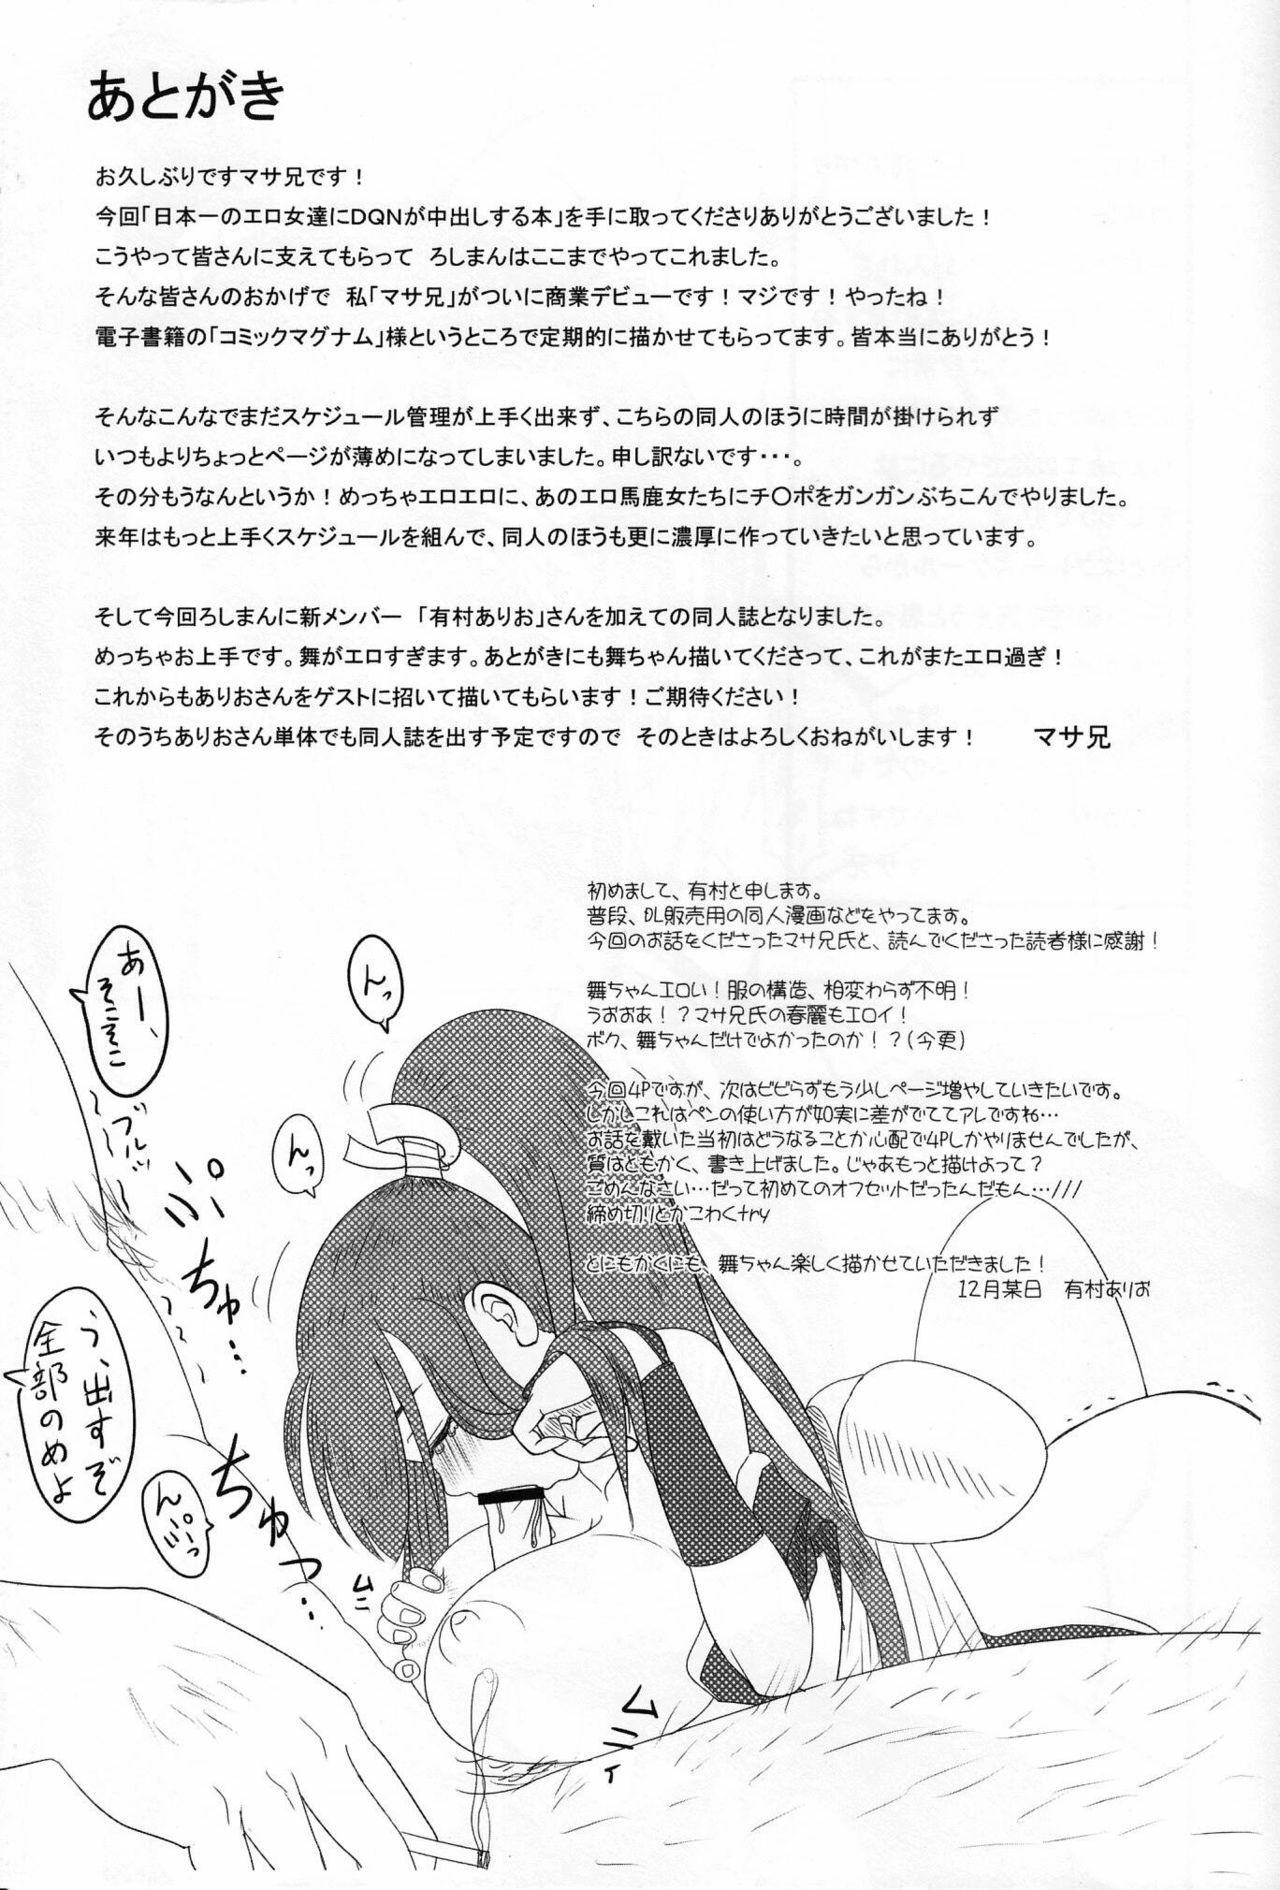 あとがき
お久しぶりですマサ兄です！
今回「日本一のエロ女達にDQNが中出しする本」を手に取ってくださりありがとうございました！
こうやって皆さんに支えてもらって　ろしまんはここまでやってこれました。
そんな皆さんのおかげで　私「マサ兄」がついに商業デビューです！マジです！やったね！
電子書籍の「コミックマグナム」様というところで定期的に描かせてもらってます。皆本当にありがとう！
そんなこんなでまだスケジュール管理が上手く出来ず、こちらの同人のほうに時間が掛けられず
いつもよりちょっとページが薄めになってしまいました。申し訳ないです・・・。
その分もうなんというか！めっちゃエロエロに、あのエロ馬鹿女たちにチ〇ポをガンガンぶちこんでやりました。
来年はもっと上手くスケジュールを組んで、同人のほうも更に濃厚に作っていきたいと思っています。
そして今回ろしまんに新メンバー　「有村ありお」さんを加えての同人誌となりました。
めっちゃお上手です。舞がエロすぎます。あとがきにも舞ちゃん描いてくださって、これがまたエロ過ぎ！
これからもありおさんをゲストに招いて描いてもらいます！ご期待ください！
そのうちありおさん単体でも同人誌を出す予定ですので　そのときはよろしくおねがいします！　　マサ兄
初めまして、有村と申します。
普段、DL販売用の同人漫画などをやってます。
今回のお話をくださったマサ兄氏と、読んでくださった読者様に感謝！
舞ちゃんエロい！服の構造、相変わらず不明！
うおおあ！？マサ兄氏の春麗もエロイ！
ボク、舞ちゃんだけでよかったのか！？（今更）
今回4Pですが、次はビビらずもう少しページ増やしていきたいです。
しかしこれはペンの使い方が如実に差がでててアレですね…
お話を戴いた当初はどうなることか心配で4Pしかやりませんでしたが、
質はともかく、書き上げました。じゃあもっと描けよって？
ごめんなさい…だって初めてのオフセットだったんだもん…///
締め切りとかこわくtry
とにもかくにも、舞ちゃん楽しく描かせていただきました！
12月某日　有村ありお
あー、
そこそこ
んっ
ブルッ
んっ
ぷ
ちゅ…
う、出すぞ
全部のめよ
ちゅっ…
ムニ
ムニィ